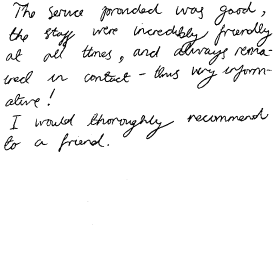 The service provided was good,
the staff were incredibly friendly
at all times, and always remai-
ned in contact - thus very inform-
ative!
I would thoroughly recommend
to a friend.